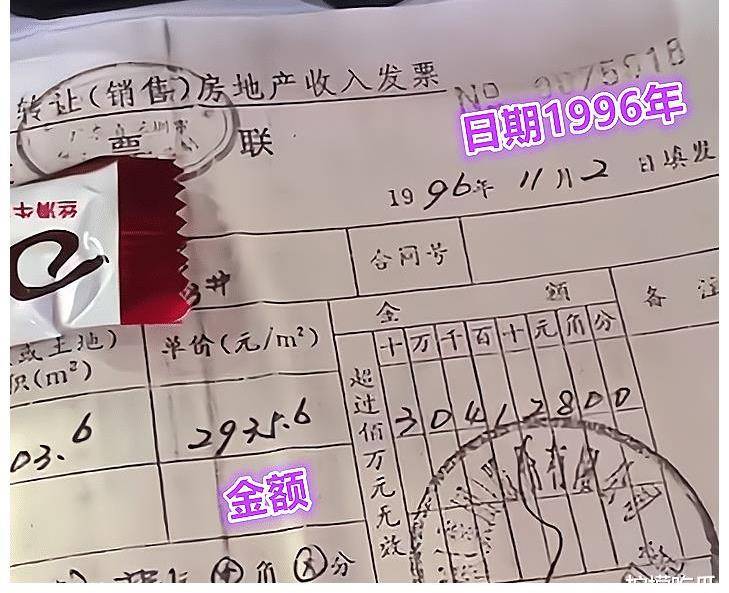 转让(销售)房地产收入发票
No 9075018
票 联
日期1996年
1996年 11月2 日填发
丝滑牛
3#
合同号
金 额
备 注
或土地)
积(m²)
单价(元/m²)
十万千百十元角分
超过佰万元无效
03.6
2935.6
30412800
金额
角 分